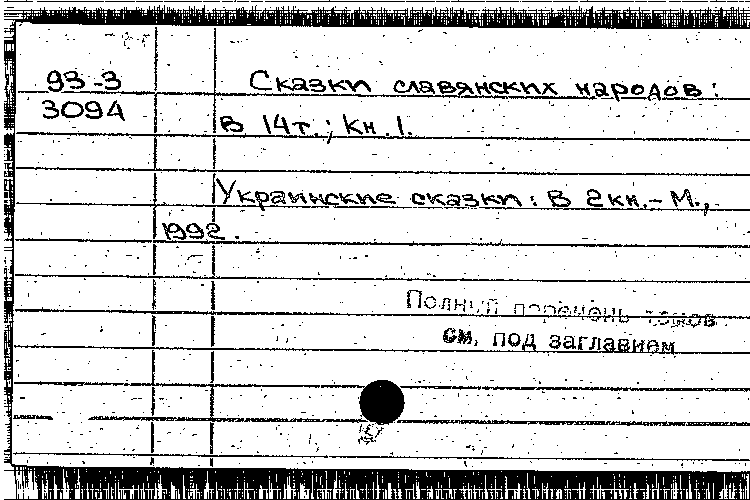 93-3
3094
Сказки славянских народов:
в 14т.; Кн. 1.
Украинские сказки: В 2кн.- М.,
1992.
Полный перечень томов
см, под заглавием